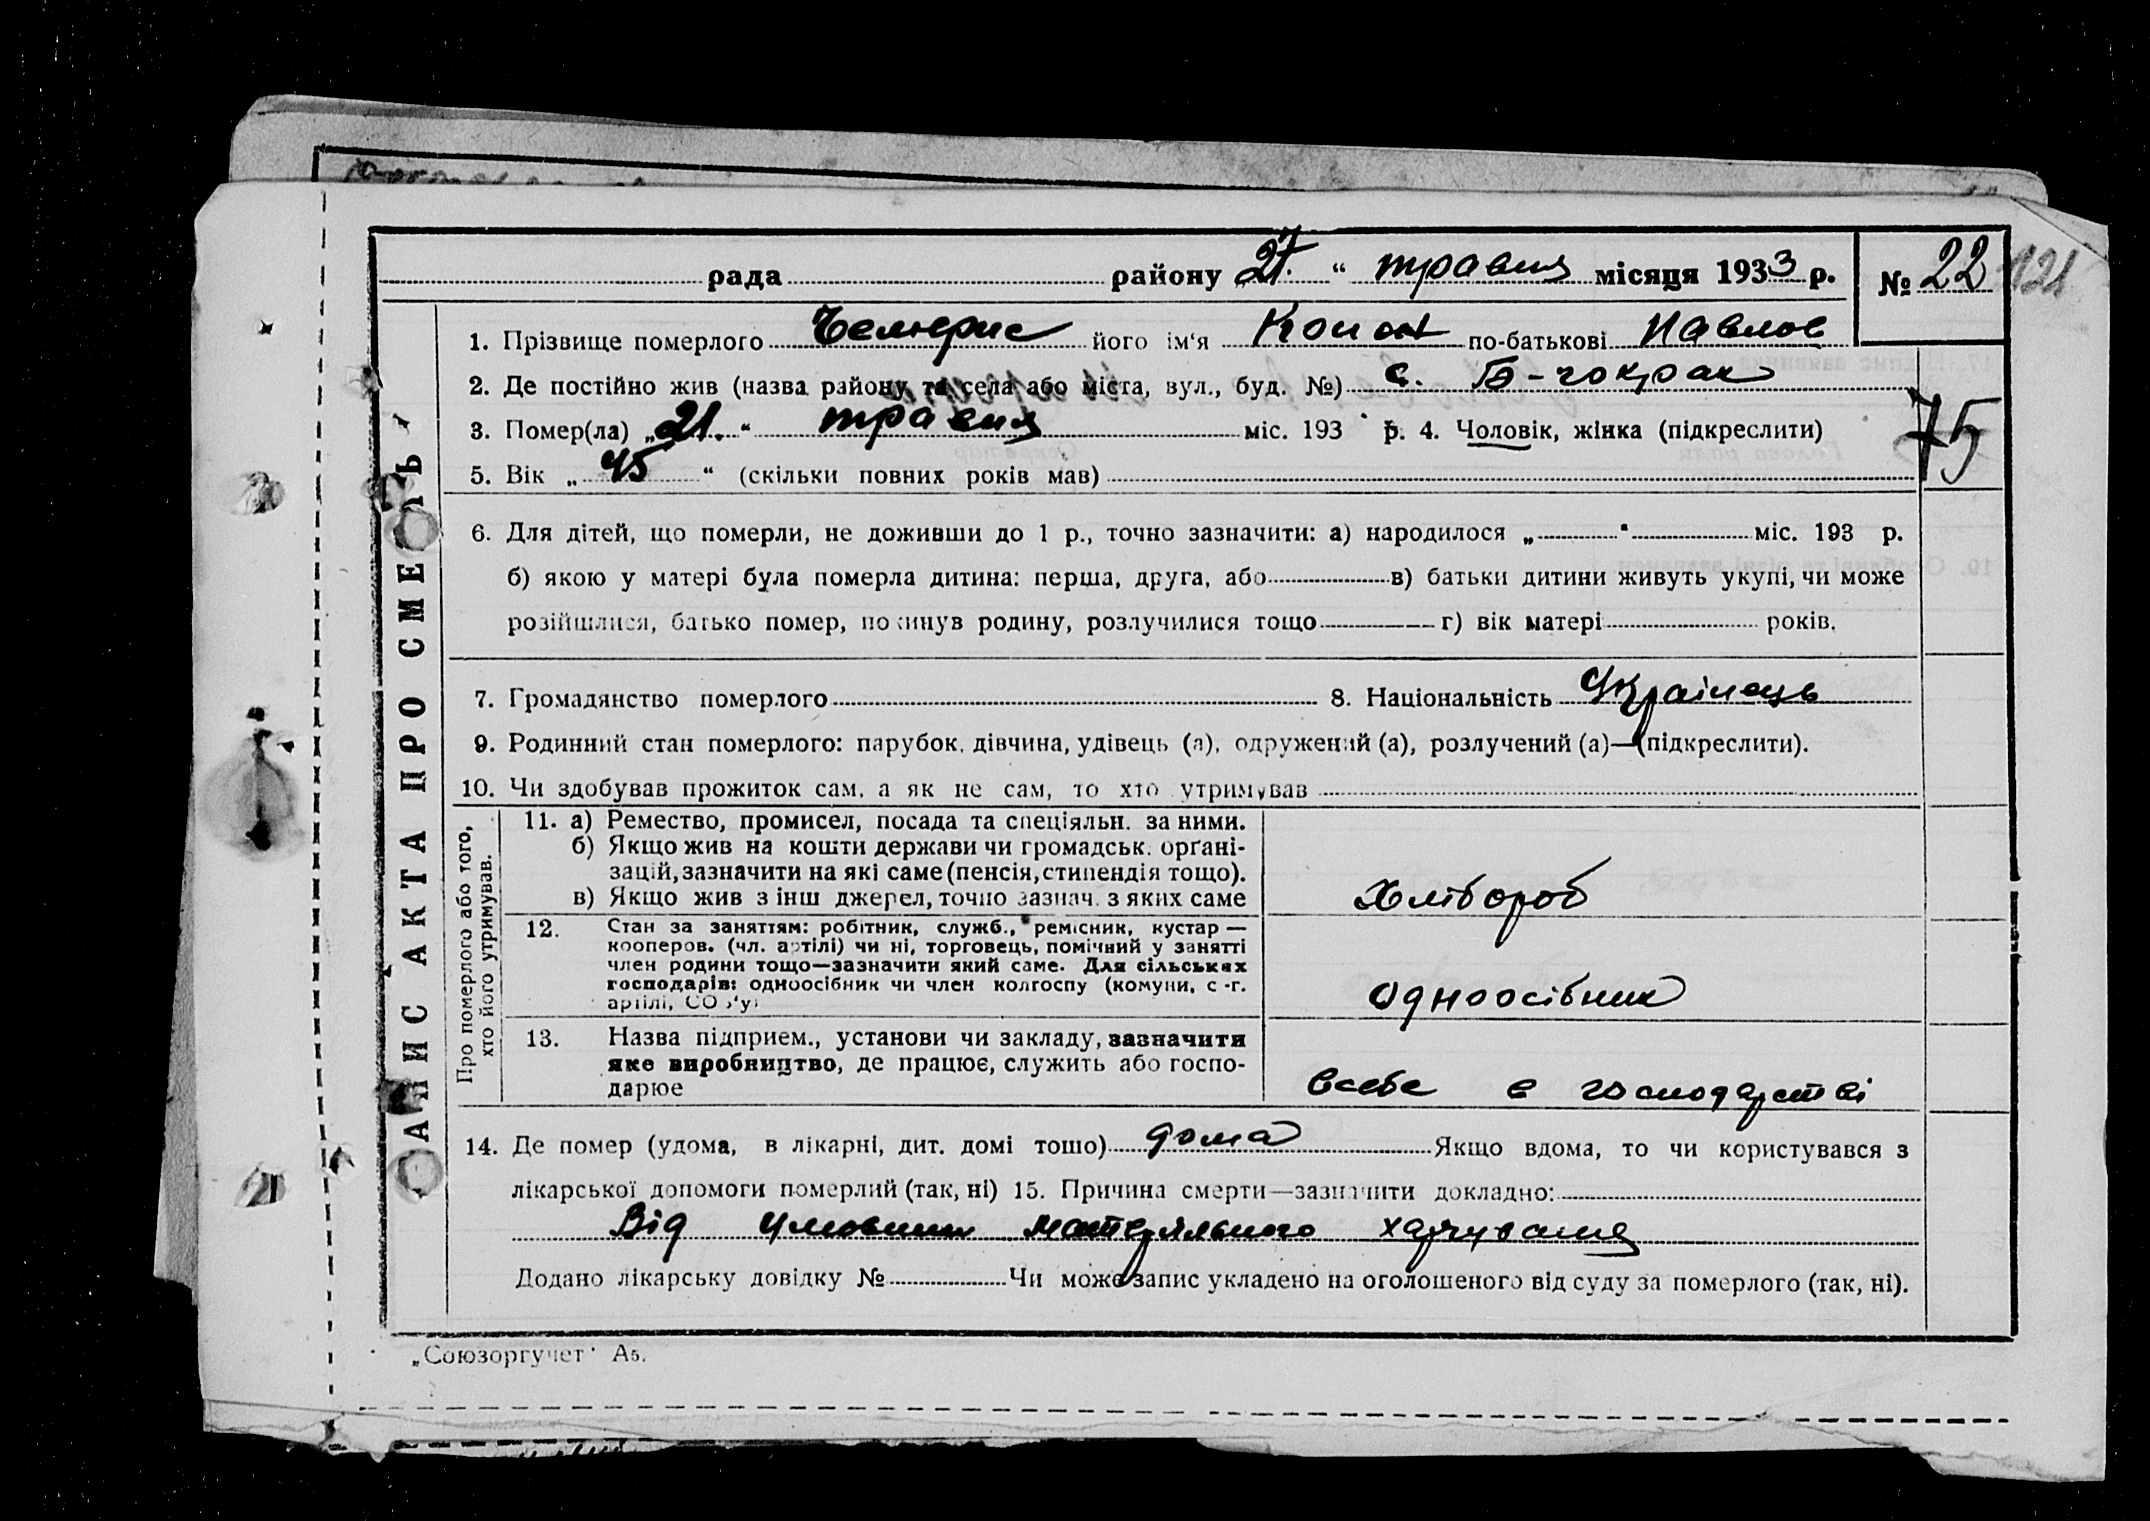 рада района 21. " травня місяця 1933 р. № 22 121
1. Прізвище померлого Чемерис його ім'я Конон по-батькові Павлов
2. Де постійно жив (назва району та села або міста, вул., буд. №) с. Б-токмак
3. Помер(ла) „21." травня міс. 193 р. 4. Чоловік, жінка (підкреслити)
75
5. Вік „45" (скільки повних років мав)
6. Для дітей, що померли, не доживши до 1 р., точно зазначити: а) народилося „ " міс. 193 р.
б) якою у матері була померла дитина: перша, друга, або в) батьки дитини живуть укупі, чи може
розійшлися, батько помер, покинув родину, розлучилися тощо г) вік матері років.
7. Громадянство померлого 8. Національність Українець
9. Родинний стан померлого: парубок, дівчина, удівець (а), одружений (а), розлучений (а)—(підкреслити).
10. Чи здобував прожиток сам, а як не сам, то хто утримував
ЗАПИС АКТА ПРО СМЕРТЬ
Про померлого або того, хто його утримував.
11. а) Ремество, промисел, посада та спеціяльн. за ними.
б) Якщо жив на кошти держави чи громадськ. органі-
зацій, зазначити на які саме (пенсія, стипендія тощо).
в) Якщо жив з інш джерел, точно зазнач. з яких саме
Хлібороб
12. Стан за заняттям: робітник, служб., ремісник, кустар —
кооперов. (чл. артілі) чи ні, торговець, помічний у занятті
член родини тощо—зазначити який саме. Для сільських
господарів: одноосібник чи член колгоспу (комуни, с-г.
артілі,
Одноосібник
13. Назва підприєм., установи чи закладу, зазначити
яке виробництво, де працює, служить або госпо-
дарює
Всебе в господарстві
14. Де помер (удома, в лікарні, дит. домі тощо) дома Якщо вдома, то чи користувався з
лікарської допомоги померлий (так, ні) 15. Причина смерти—зазначити докладно:
Від матеріяльного харчування
Додано лікарську довідку № Чи може запис укладено на оголошеного від суду за померлого (так, ні).
„Союзоргучет" А5.